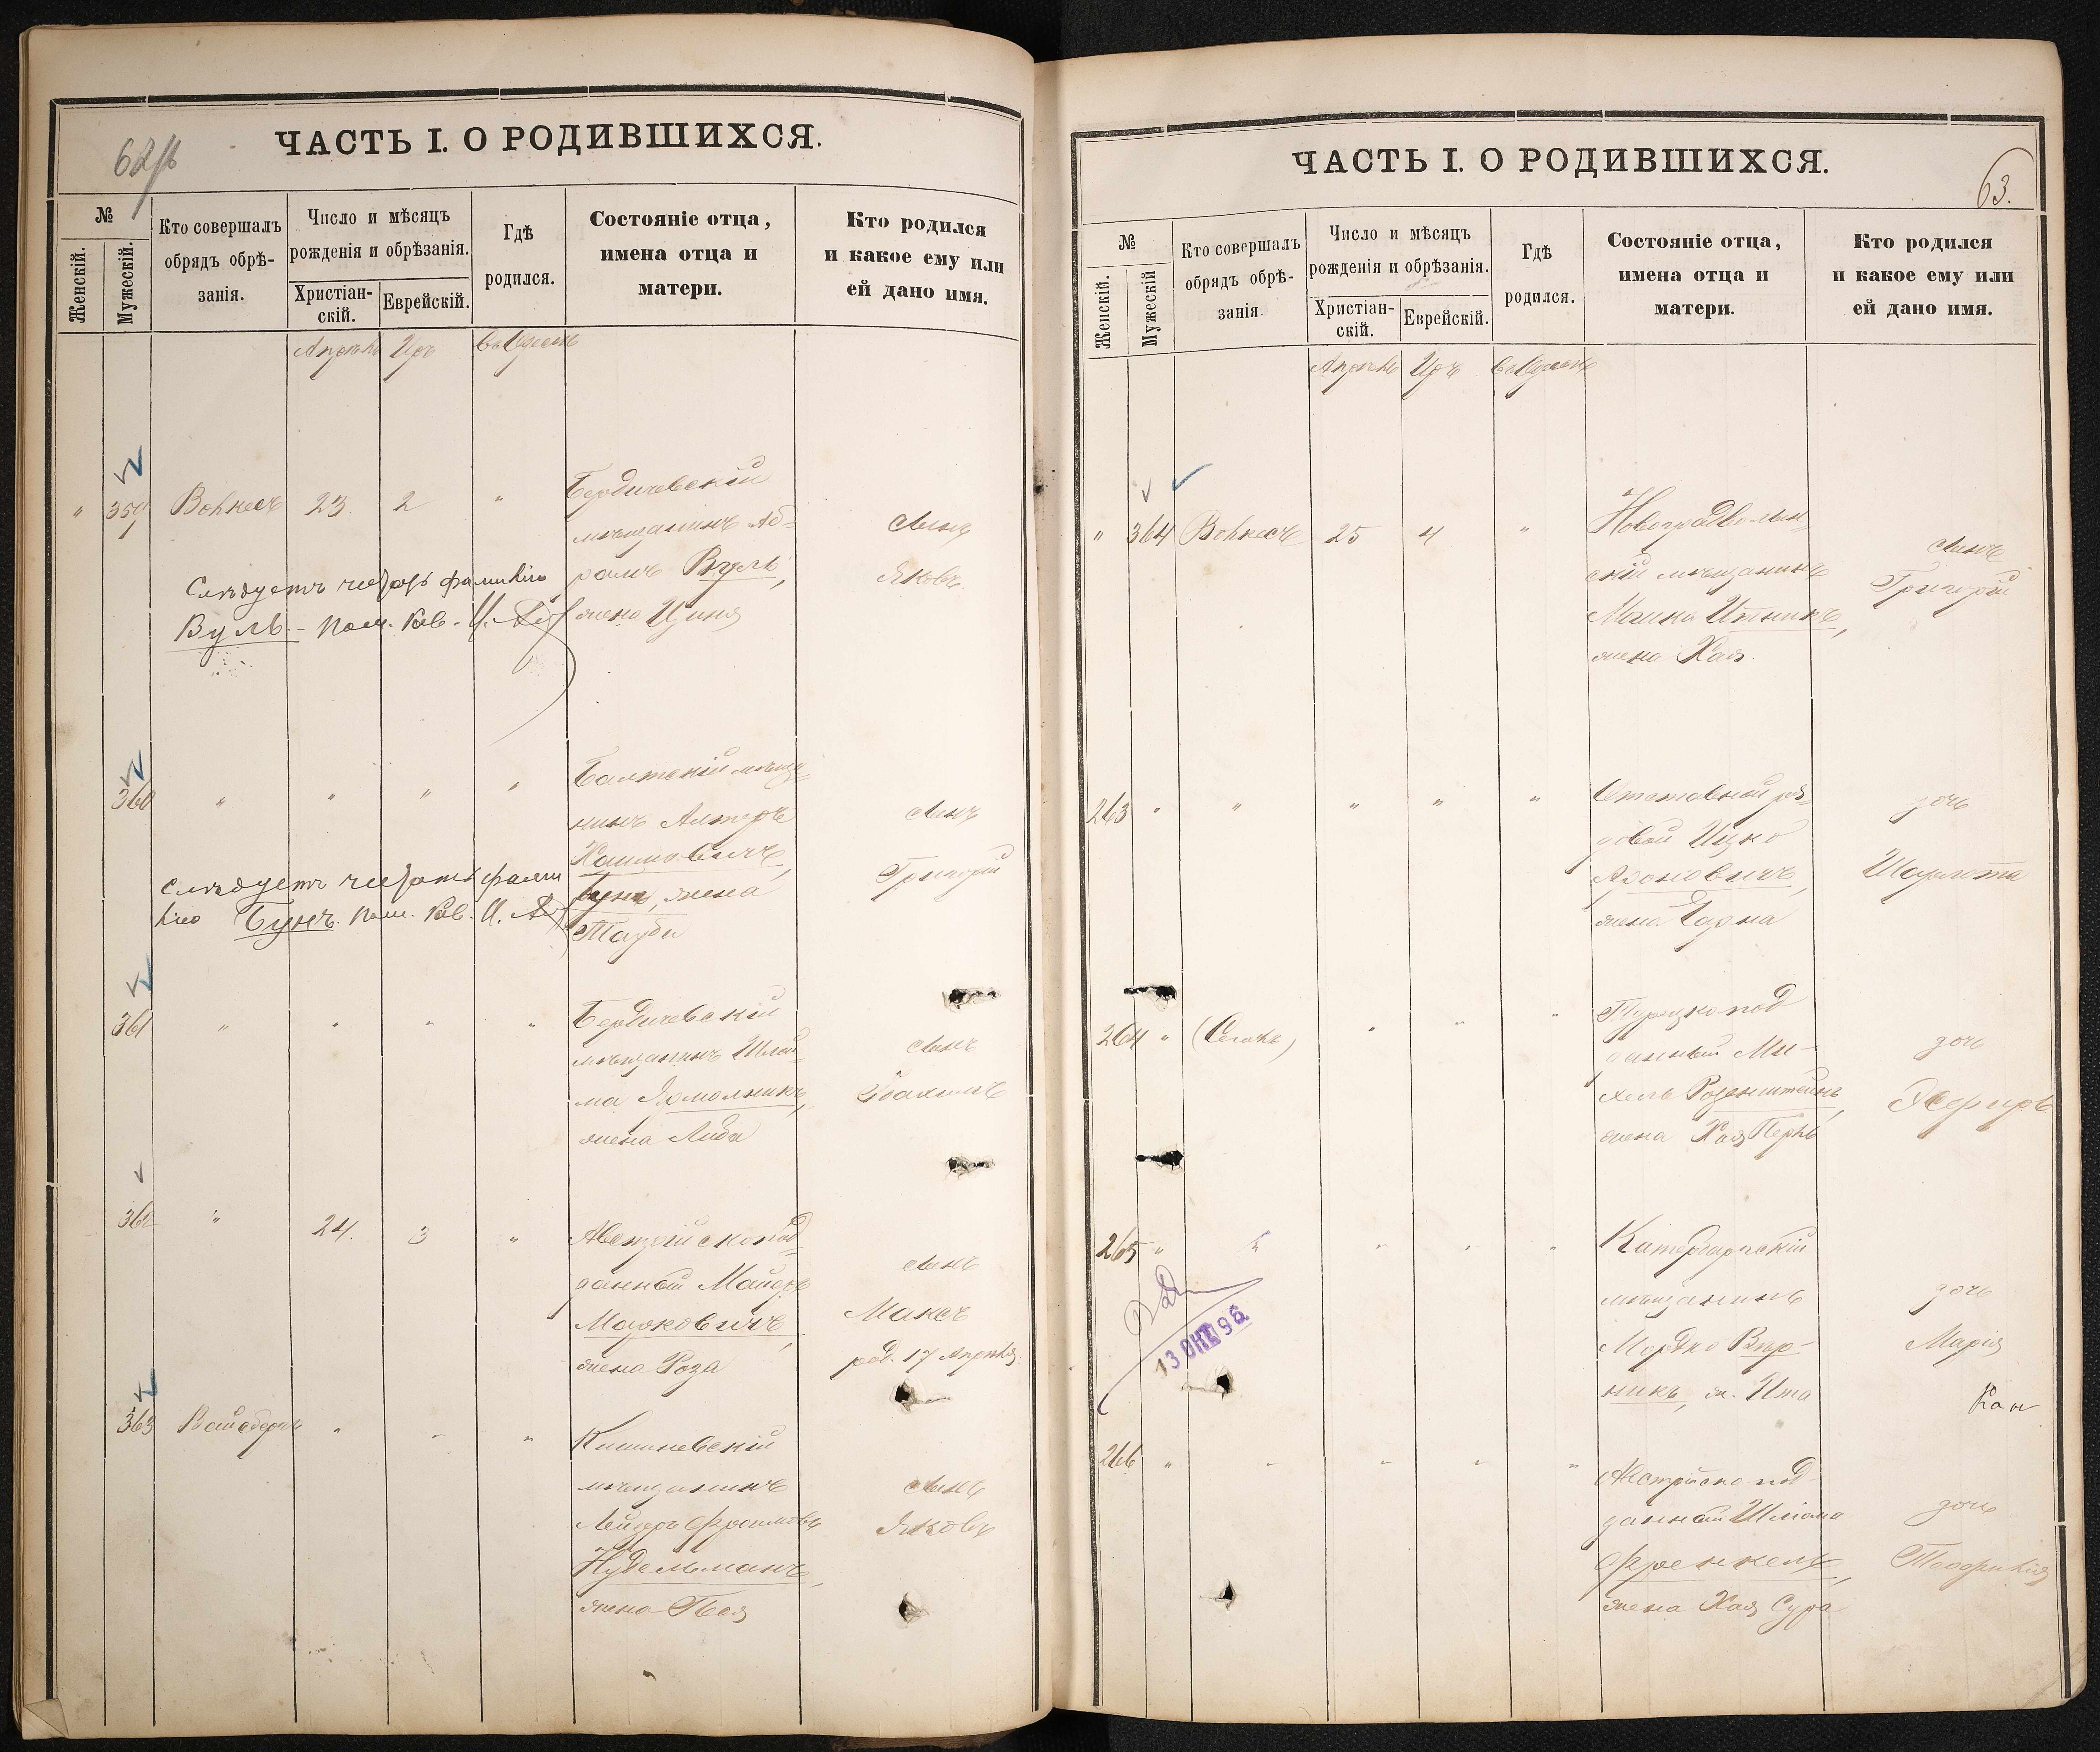 62
ЧАСТЬ I. О РОДИВШИХСЯ.
№
Женскій.
Мужескій.
Кто совершалъ
обрядъ обрѣ-
занія.
Число и мѣсяцъ
рожденія и обрѣзанія.
Христіан-
скій.
Еврейскій.
Гдѣ
родился.
Состояніе отца,
имена отца и
матери.
Кто родился
и какое ему или
ей дано имя.
Апрѣль Иръ
" 359 23 2 "
Бердичевскій
мѣщанинъ Аб-
рамъ Вуль,
жена Ципя
сынъ
Яковъ
Слѣдуетъ читать фамилію
Вуль. Пом. Рав.
360 " " " "
Балтскій мѣща-
нинъ Альтеръ
Хаимовичъ
Бунъ, жена
Тауба
сынъ
Григорій
Слѣдуетъ читать фами
лію Бунъ. Пом. Рав.
361 " " " "
Бердичевскій
мѣщанинъ Шлай-
ма Ярмолникъ,
жена Люба
сынъ
Іоахимъ
362 " 24. 3 "
Австрійскопод-
данный Майеръ
Марковичъ,
жена Роза
сынъ
Максъ
род. 17 Апрѣля
363 Вайсбергъ " " "
Кишиневскій
мѣщанинъ
Лейзеръ Фроимовъ
Нудельманъ,
жена Песя
сынъ
Яковъ
ЧАСТЬ I. О РОДИВШИХСЯ.
63.
№
Женскій.
Мужескій
Кто совершалъ
обрядъ обрѣ-
занія.
Число и мѣсяцъ
рожденія и обрѣзанія.
Христіан-
скій.
Еврейскій.
Гдѣ
родился.
Состояніе отца,
имена отца и
матери.
Кто родился
и какое ему или
ей дано имя.
Апрѣль Иръ
" 364 25 4 "
Новоградволын-
скій мѣщанинъ
Мошко Итникъ,
жена Хая
сынъ
Григорій
263 " " " " "
Отставной ря-
довой Ицко
Ароновичъ,
жена Чарна
дочь
Шарлота
264 " " " "
Турецкопод
данный Ми-
хель Розенштейнъ,
жена Хая Перль
дочь
Эсфирь
265 " " " "
мѣщанинъ
Мордко Вир-
никъ, ж. Ита
дочь
Марія
13 ОКТ 96
266 " " " " "
Австрійскопод-
данный Шліома
Френкель,
жена Хая Сура
дочь
Теофилія